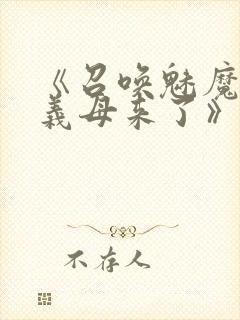 《召唤魅魔
義母来了》
不存人